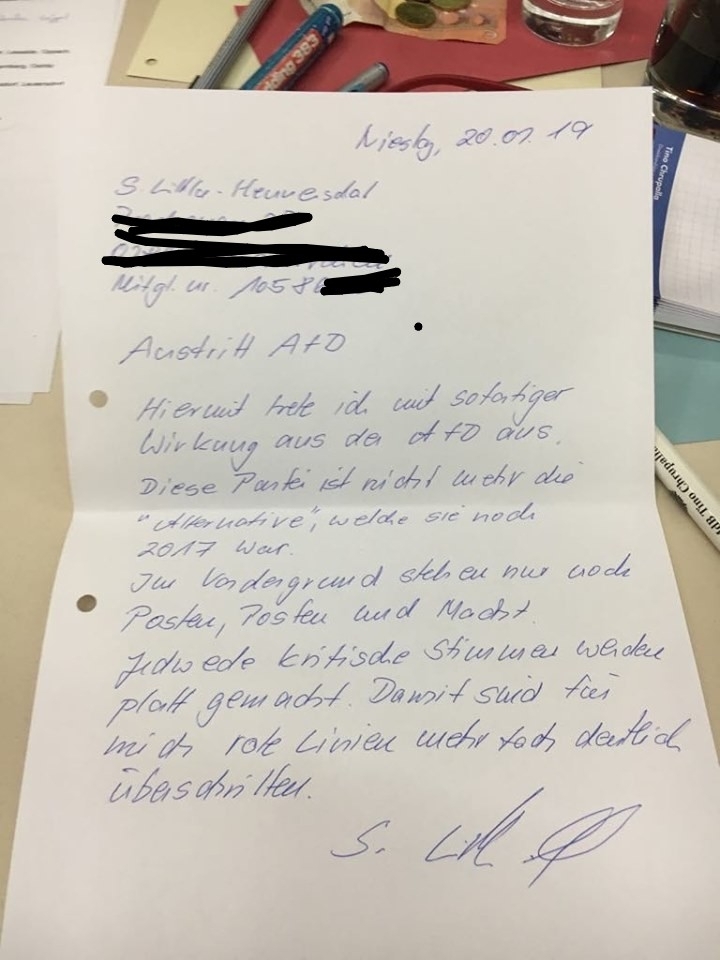 Niesky, 20.01.19
S. Littke-Hennersdorf
Mitgl. nr. 10586
Austritt AfD
Hiermit trete ich mit sofortiger
Wirkung aus der AfD aus.
Diese Partei ist nicht mehr die
"Alternative", welche sie noch
2017 war.
Im Vordergrund stehen nur noch
Posten, Posten und Macht.
Jedwede kritische Stimmen werden
platt gemacht. Damit sind für
mich rote Linien mehrfach deutlich
überschritten.
S.
edding 383
Tino Chrupalla
MdB Tino Chrupalla